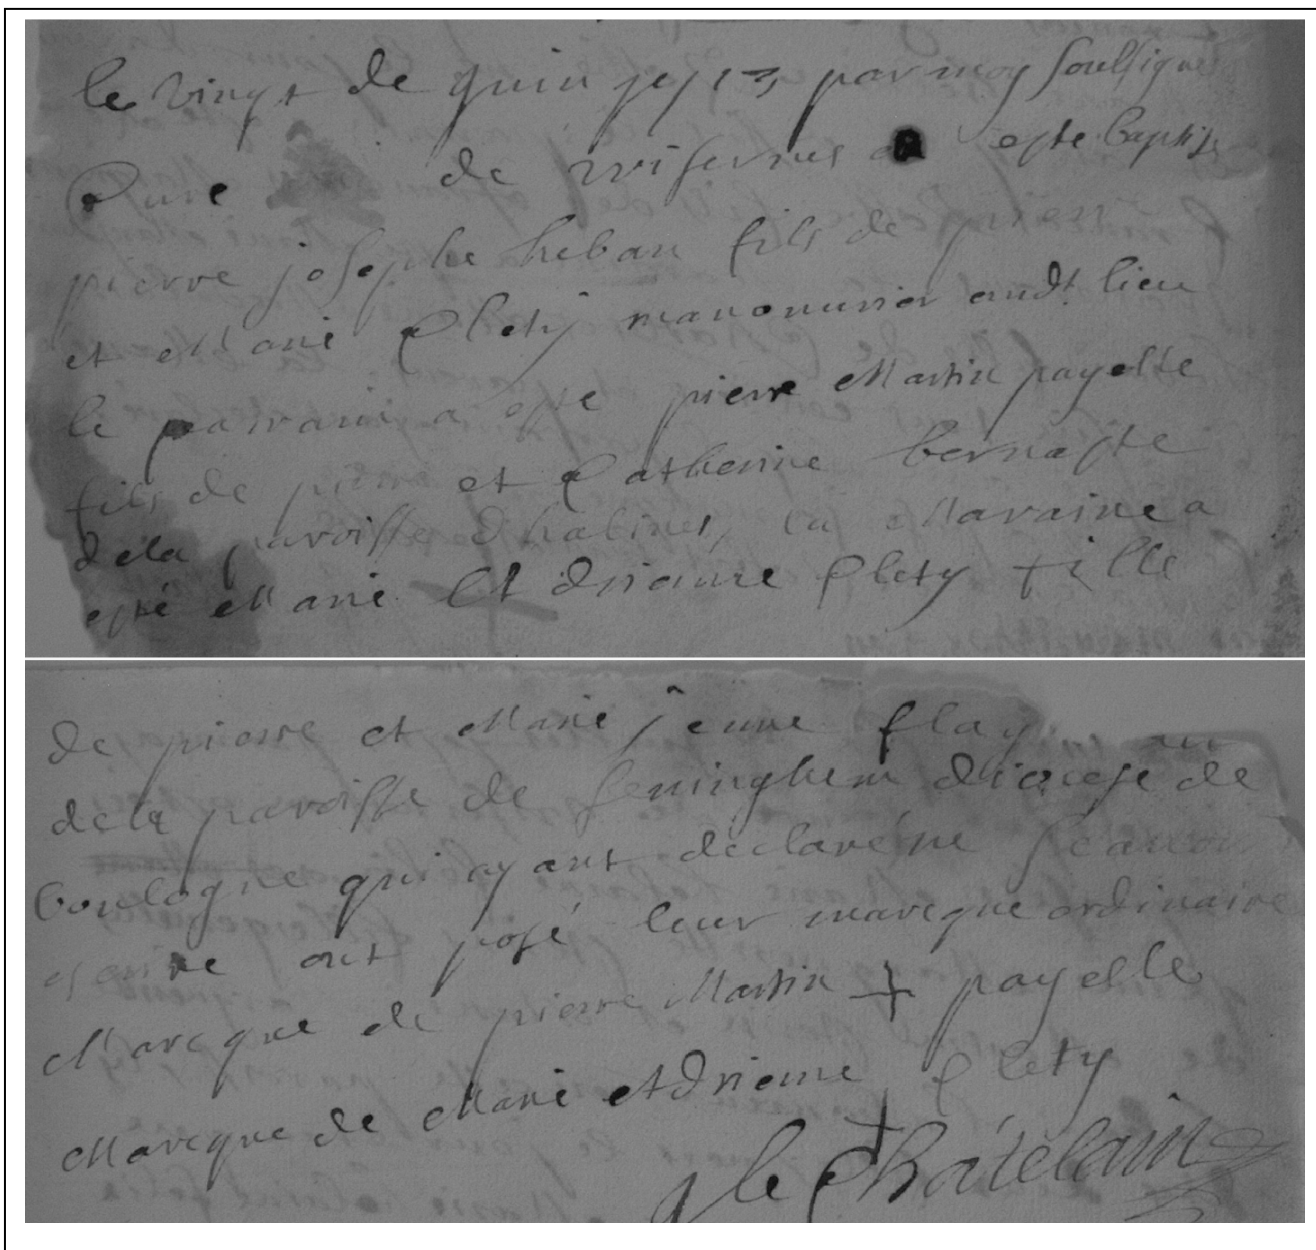 le vingt de juin 1713 par moy soussigné
Curé de wisernes a esté baptisé
pierre josephe heban fils de pierre
et Marie Flety manouurier audt. lieu
le parain a esté pierre Martin payelle
fils de pierre et Catherine bernaste
dela paroisse dhalines, la Maraine a
esté Marie Adrienne flety fille
de pierre et Marie jenne flay
dela paroisse de seninghem diocese de
boulogne qui ayant déclaré ne scavoir
escrire ont posé leur marcque ordinaire
Marcque de pierre Martin payelle
Marcque de Marie Adrienne flety
le Chatelain